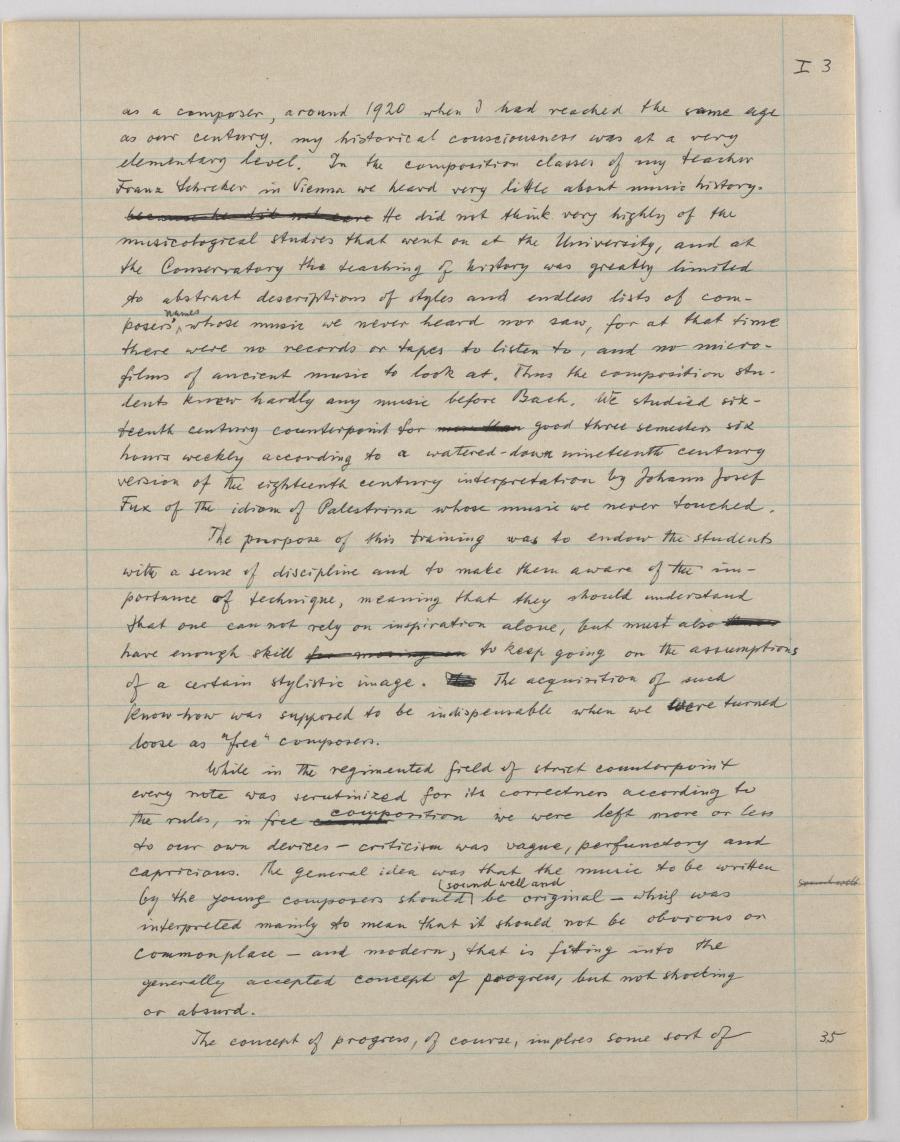 I 3
as a composer, around 1920 when I had reached the same age
as our century. my historical consciousness was at a very
elementary level. In the composition classes of my teacher
Franz Schreker in Vienna we heard very little about music history.
because he did not care He did not think very highly of the
musicological studies that went on at the University, and at
the Conservatory the teaching of history was greatly limited
to abstract descriptions of styles and endless lists of com-
names
posers', whose music we never heard nor saw, for at that time
there were no records or tapes to listen to, and no micro-
films of ancient music to look at. Thus the composition stu-
dents knew hardly any music before Bach. We studied six-
teenth century counterpoint for more than good three semesters six
hours weekly according to a watered-down nineteenth century
version of the eighteenth century interpretation by Johann Josef
Fux of the idiom of Palestrina whose music we never touched.
The purpose of this training was to endow the students
with a sense of discipline and to make them aware of the im-
portance of technique, meaning that they should understand
that one can not rely on inspiration alone, but must also
have enough skill to keep going on the assumptions
of a certain stylistic image. The acquisition of such
know-how was supposed to be indispensable when we were turned
loose as "free" composers.
While in the regimented field of strict counterpoint
every note was scrutinized for its correctness according to
the rules, in free composition we were left more or less
to our own devices – criticism was vague, perfunctory and
capricious. The general idea was that the music to be written
sound well and
sound well
by the young composers should be original – which was
interpreted mainly to mean that it should not be obvious or
commonplace – and modern, that is fitting into the
generally accepted concept of progress, but not shocking
or absurd.
The concept of progress, of course, implies some sort of
35